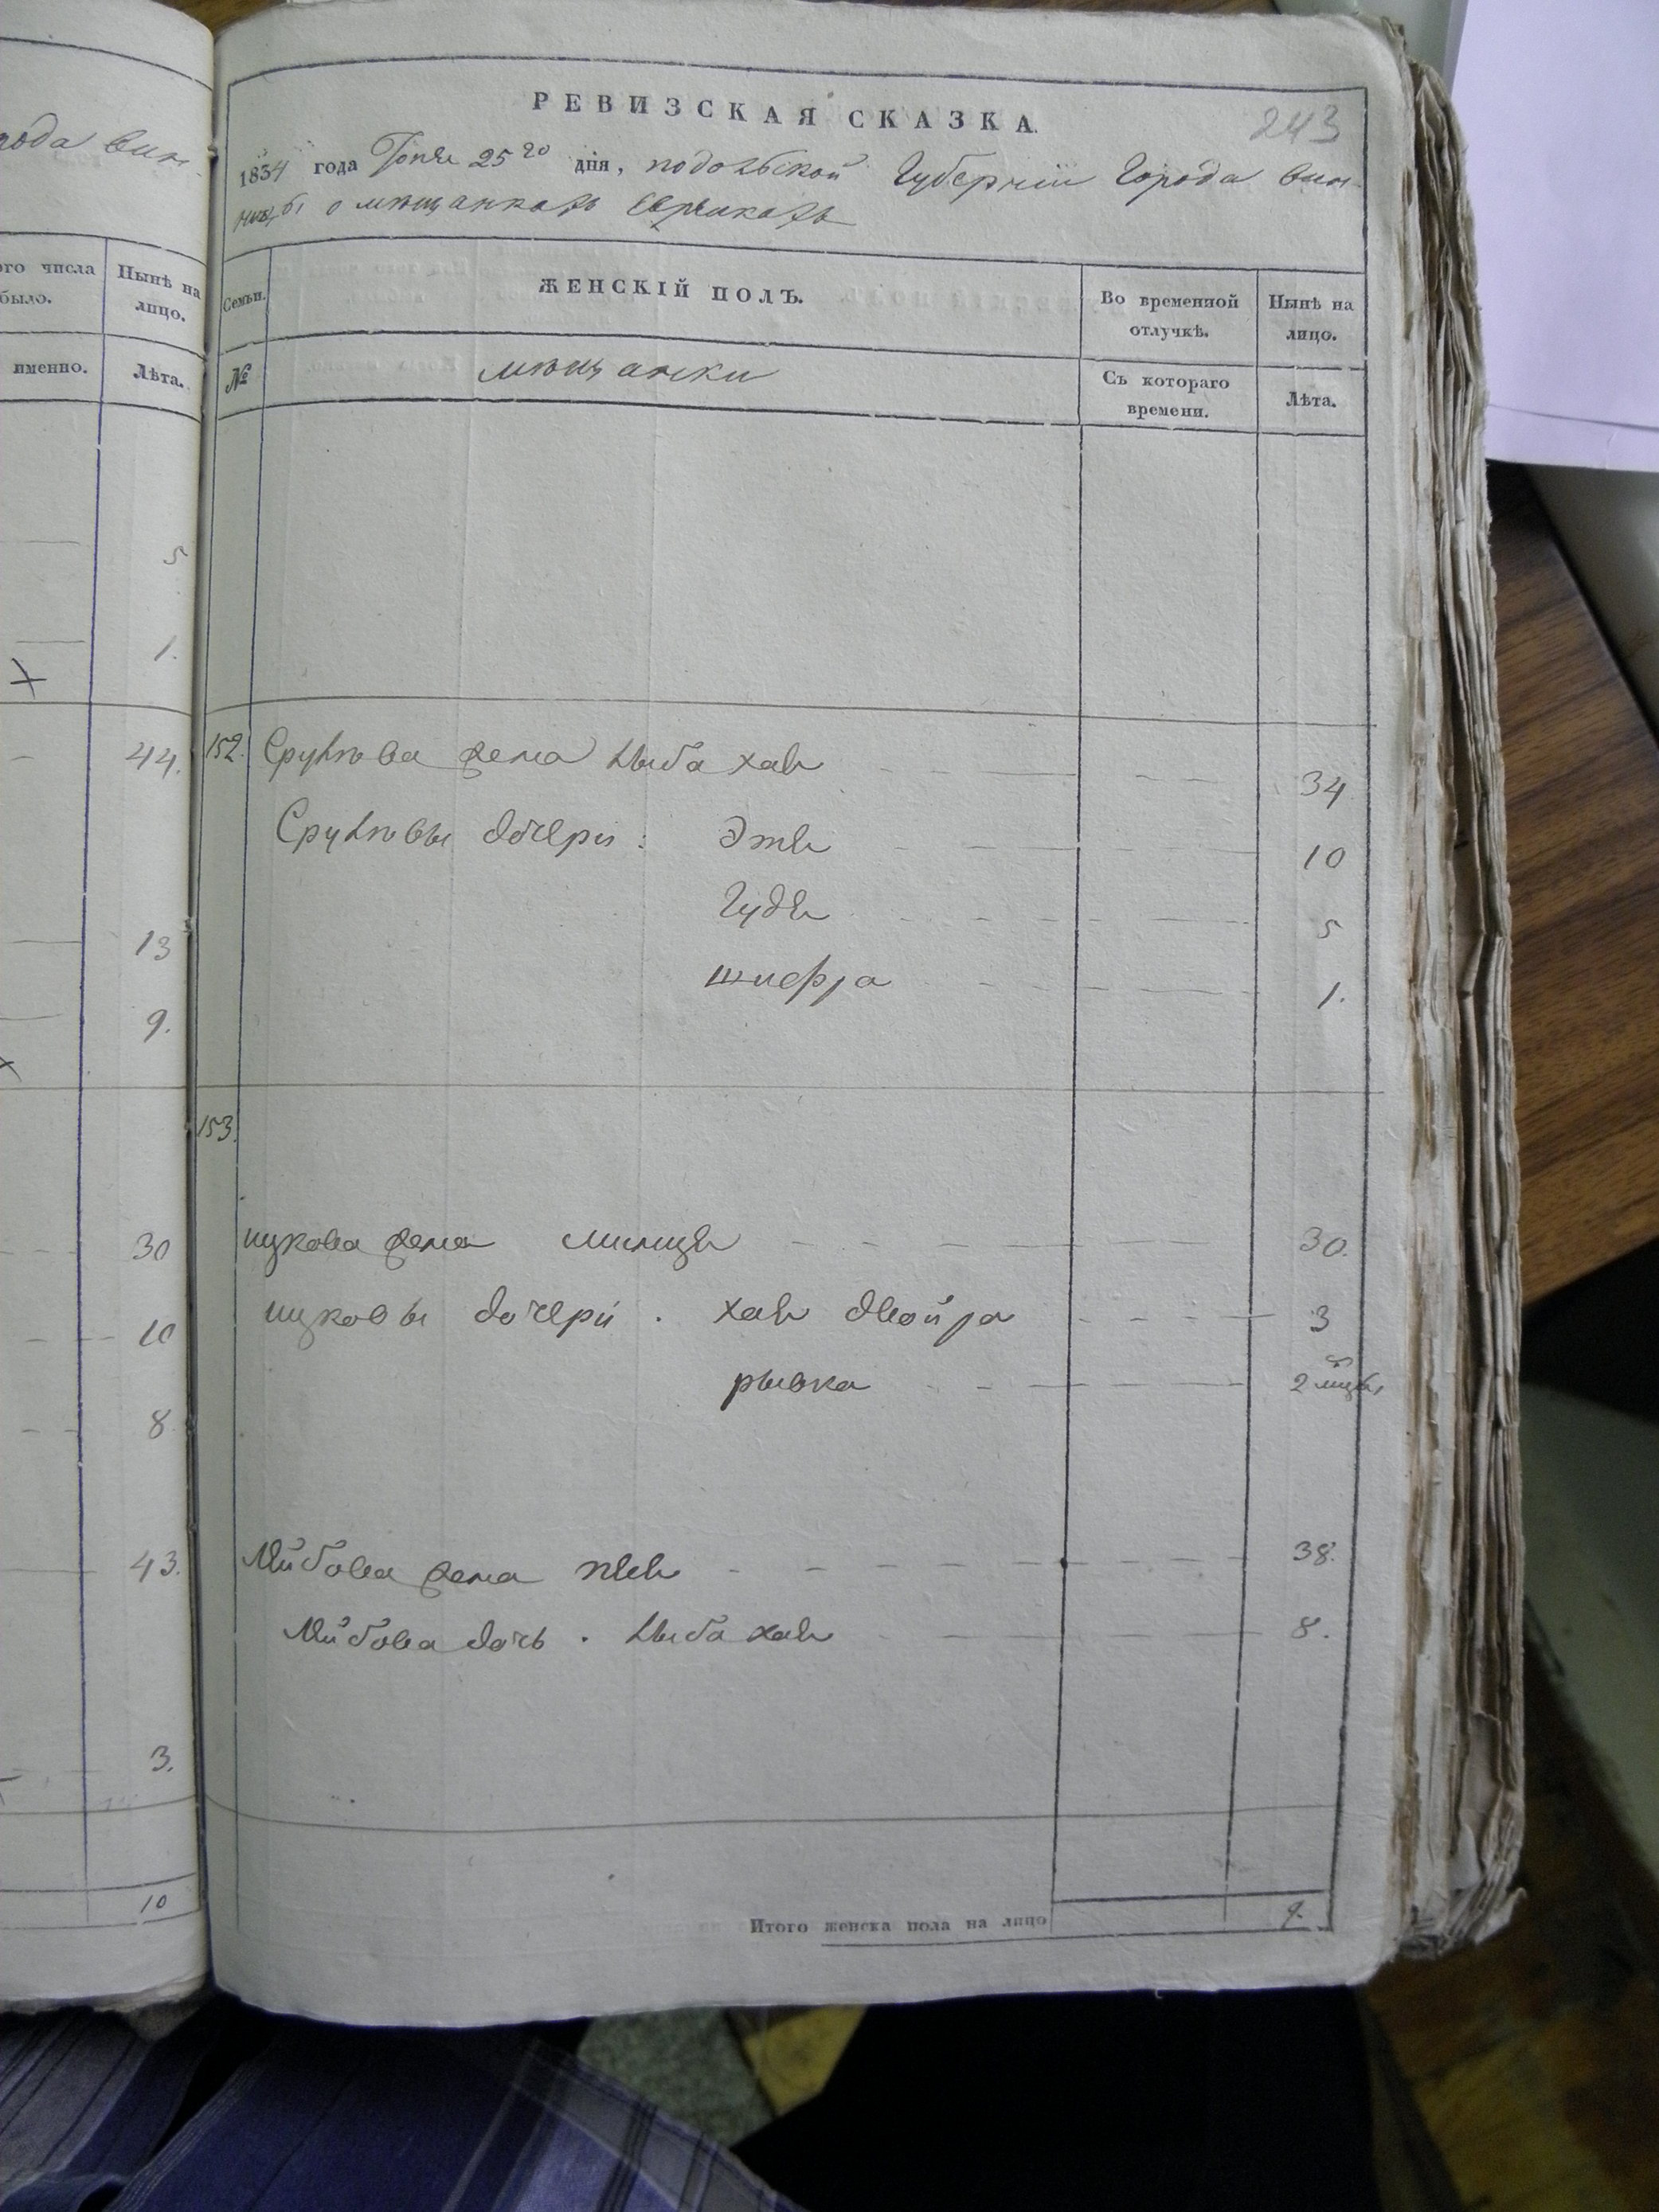 243
РЕВИЗСКАЯ СКАЗКА.
1834 года Iюня 25го дня, подольской Губернiи Города Вин-
ницы о мѣщанкахъ Еврѣйкахъ
Семьи. ЖЕНСКIЙ ПОЛЪ. Во временной отлучкѣ. Нынѣ на лицо.
№ мѣщанки Съ котораго времени. Лѣта.
152. Срулѣва жена Цыба хая 34
Срулѣвы дочери: Этя 10
Гудя 5
шифра 1.
153.
ицкова жена 30.
ицковы дочери. хая двойра 3
рывка 2
Лейбова жена 38.
Лейбова дочь. Цыба хая 8.
Итого женска пола на лицо 9.
рода Вин-
ого числа было. Нынѣ на лицо.
именно. Лѣта.
5
1.
44.
13
9.
30
10
8
43.
3.
10